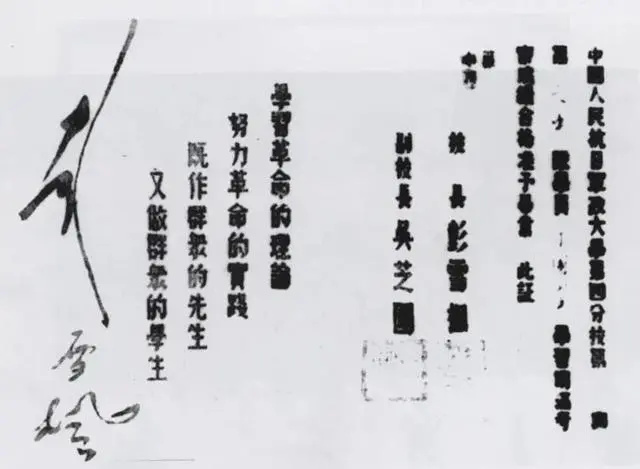 中國人民抗日軍政大學第四分校
隊學員 學習期滿考
成績合格准予畢業 此証
校長 彭雪楓
副校長 吳芝圃
學習革命的理論
努力革命的實踐
既作群衆的先生
又做群衆的學生
雪楓